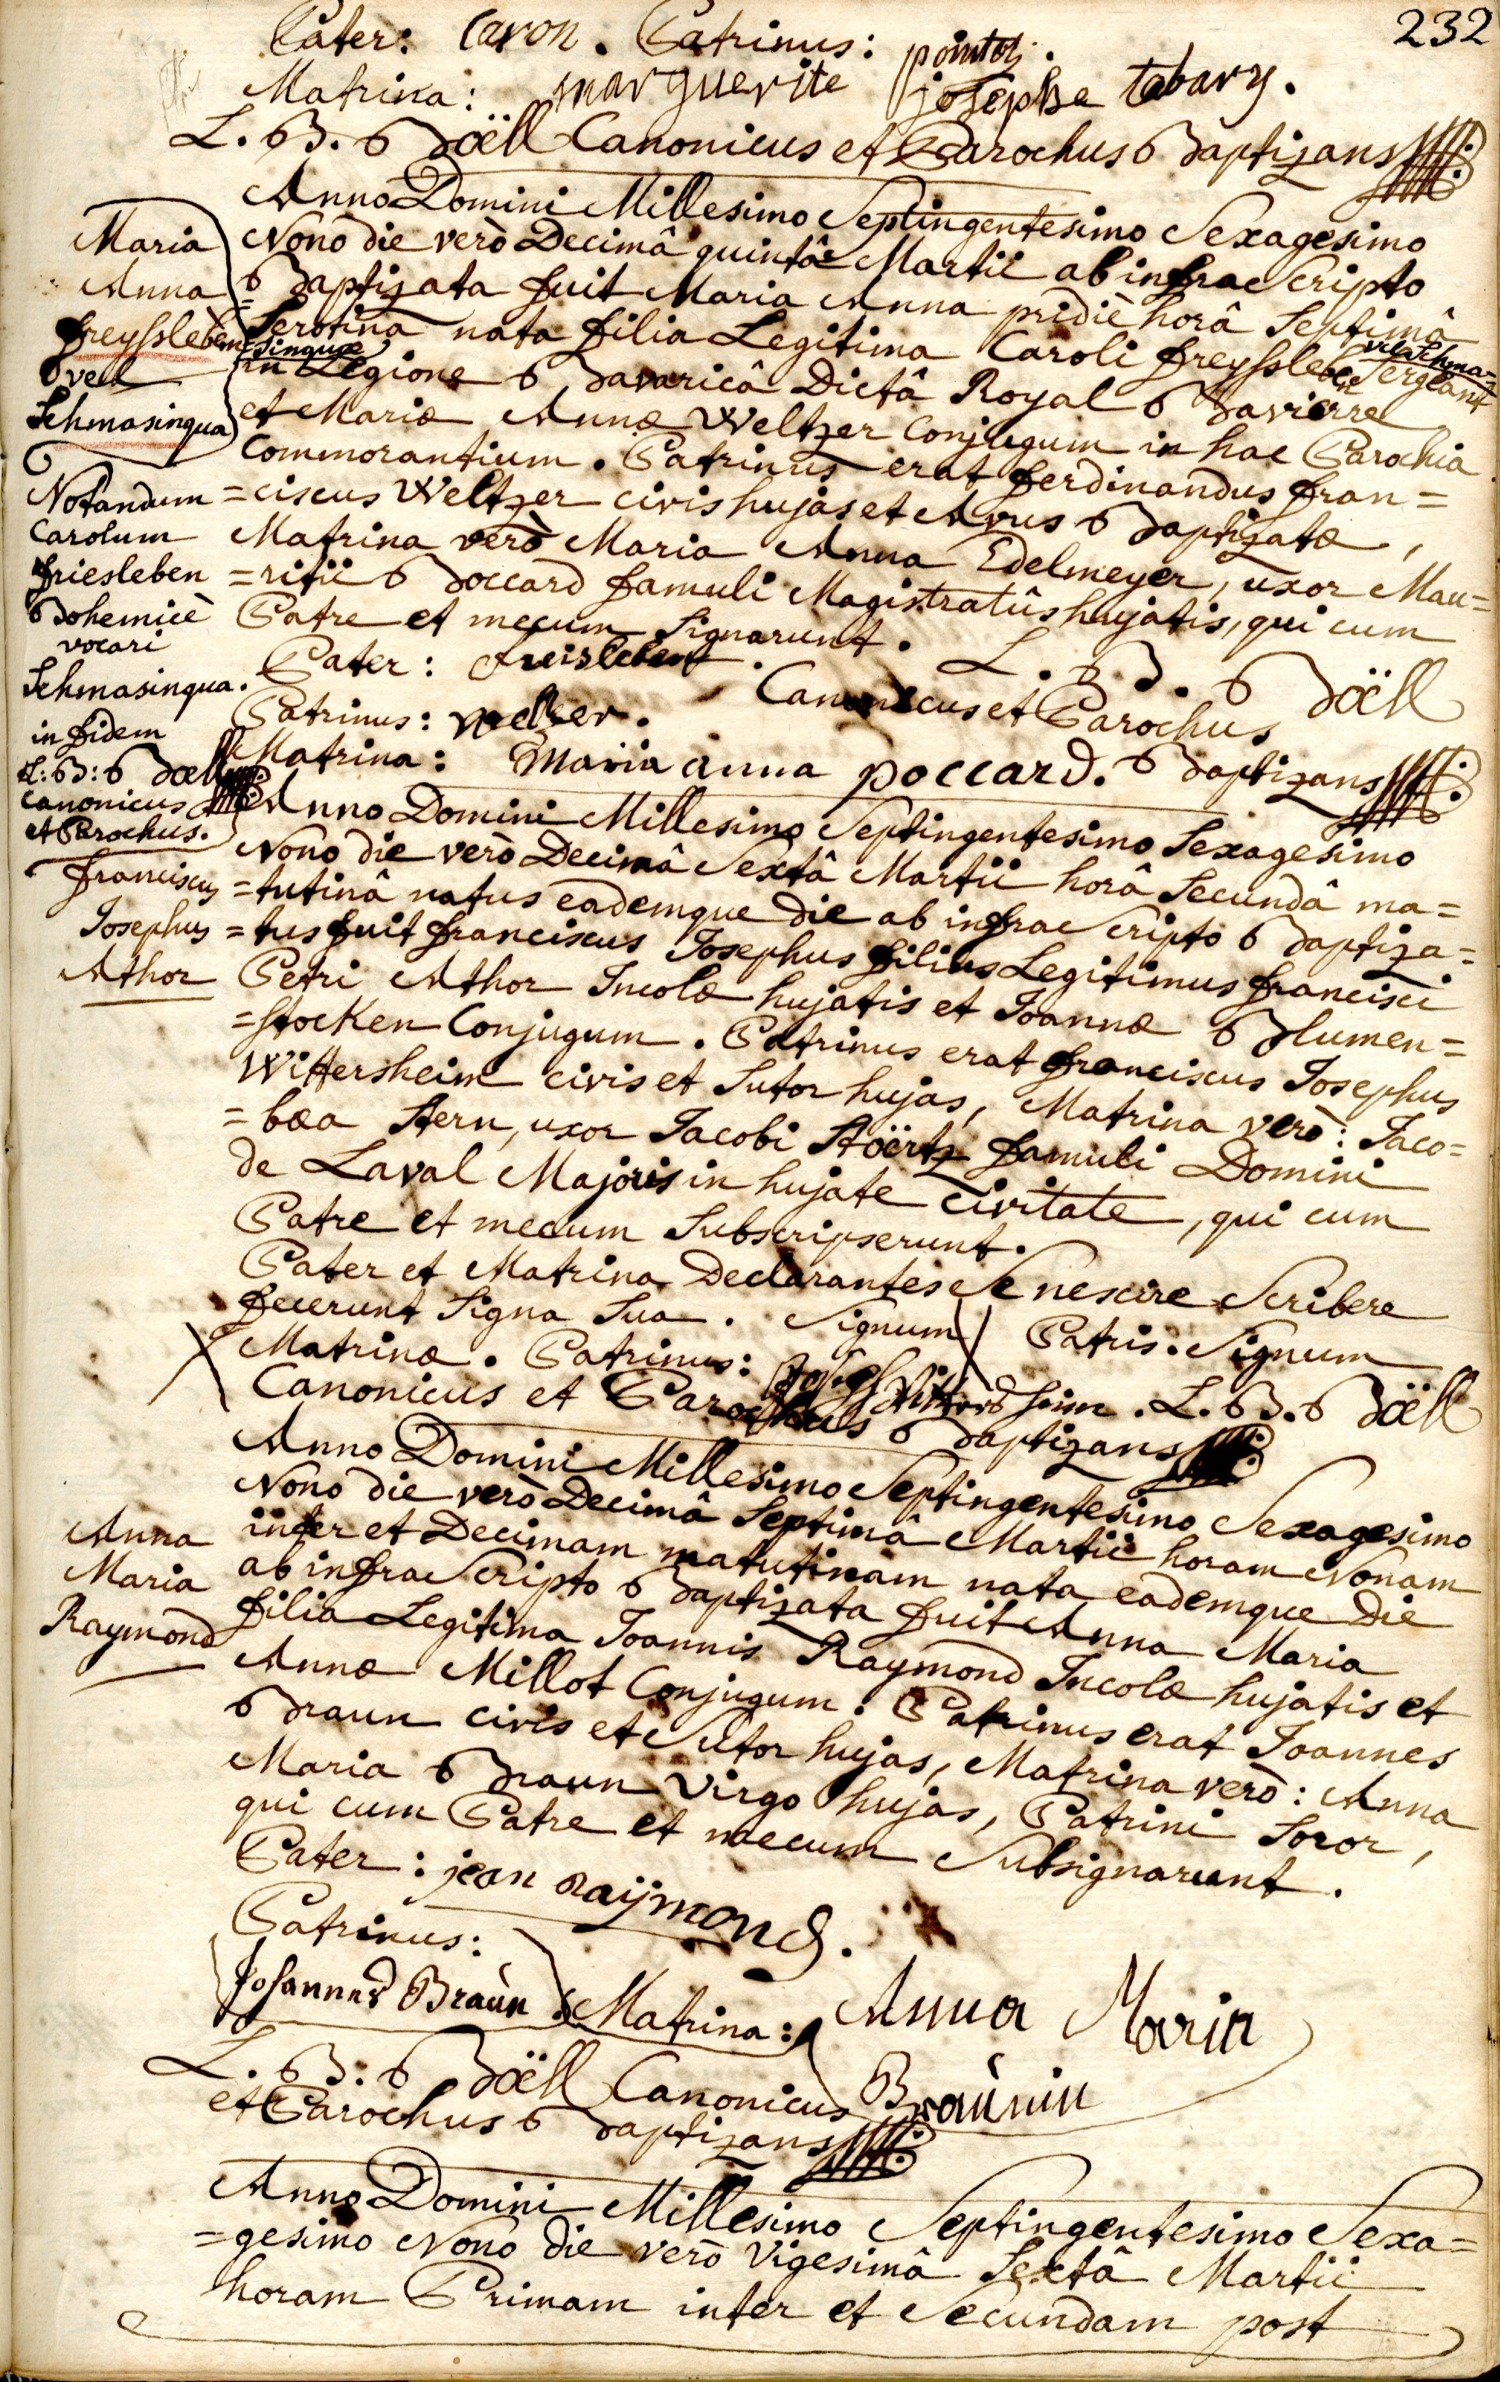 232
Pater: Caron. Patrinus: pointot.
Matrina: marguerite josepha tabary.
L. B. Boëll Canonicus et Parochus Baptizans
Anno Domini Millesimo Septingentesimo Sexagesimo
Nonô die verò Decimâ quintâ Martii ab infra Scripto
Baptizata fuit Maria Anna pridiè horâ Septimâ
Serotina nata filia Legitima Caroli freyssleben vel Schma=
=singua Sergeant
in Legione Bavaricâ Dictâ Royal Bavierre
et Mariæ Annæ Weltzer Conjugum in hac Parochia
Commorantium. Patrinus erat ferdinandus fran=
=ciscus Weltzer civis hujas et Avus Baptizatæ,
Matrina verò Maria Anna Edelmeyer, uxor Mau=
=ritii Boccard famuli Magistratûs hujatis, qui cum
Patre et mecum Signarunt.
Pater: freisleben L. B. Boëll
Patrinus: Weltzer. Canonicus et Parochus
Matrina: Maria anna poccard. Baptizans
Maria
Anna
freyssleben
vel
Schmasingua
Notandum
Carolum
friesleben
Bohemicè
vocari
Schmasingua.
in fidem
L: B: Boëll
Canonicus
et Parochus.
Anno Domini Millesimo Septingentesimo Sexagesimo
Nonô die verò Decimâ Sextâ Martii horâ Secundâ ma=
=tutinâ natus eademque die ab infra Scripto Baptiza=
=tus fuit franciscus Josephus filius Legitimus francisci
Petri Athor Incolæ hujatis et Joannæ Blumen=
=stocken Conjugum. Patrinus erat franciscus Josephus
Wittersheim civis et Sutor hujas, Matrina verò: Jaco=
=bæa Stern, uxor Jacobi Stöertz famuli Domini
de Laval Majoris in hujate Civitate, qui cum
Patre et mecum Subscripserunt.
Pater et Matrina Declarantes Se nescire Scribere
fecerunt Signa Sua. Signum Patris. Signum
Matrinæ. Patrinus: Joseph Wittersheim. L. B. Boëll
Canonicus et Parochus Baptizans
franciscus
Josephus
Athor
Anno Domini Millesimo Septingentesimo Sexagesimo
Nonô die verò Decimâ Septimâ Martii horam Nonam
inter et Decimam matutinam nata eademque Die
ab infra Scripto Baptizata fuit Anna Maria
filia Legitima Joannis Raymond Incolæ hujatis et
Annæ Millot Conjugum. Patrinus erat Joannes
Braun civis et Sutor hujas, Matrina verò: Anna
Maria Braun Virgo hujas, Patrini Soror,
qui cum Patre et mecum Subsignarunt.
Pater: jean Raijmond.
Patrinus:
Johannes Braùn. Matrina: Anna Maria
Braùnin
L. B. Boëll Canonicus
et Parochus Baptizans
Anna
Maria
Raymond
Anno Domini Millesimo Septingentesimo Sexa=
=gesimo Nonô Die verò Vigesimâ Sextâ Martii
horam Primam inter et Secundam post